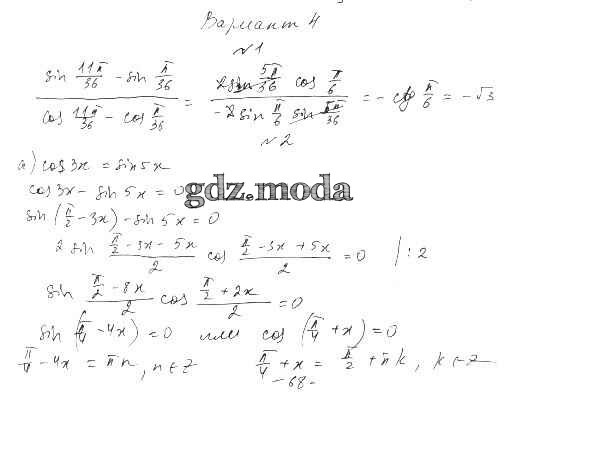 Вариант 4
№1
(sin 11π/36 - sin π/36) / (cos 11π/36 - cos π/36) = (2 sin 5π/36 cos π/6) / (-2 sin π/6 sin 5π/36) = - ctg π/6 = -√3
№2
а) cos 3x = sin 5x
cos 3x - sin 5x = 0
gdz.moda
sin (π/2 - 3x) - sin 5x = 0
2 sin (π/2 - 3x - 5x)/2 cos (π/2 - 3x + 5x)/2 = 0 | : 2
sin (π/2 - 8x)/2 cos (π/2 + 2x)/2 = 0
sin (π/4 - 4x) = 0 или cos (π/4 + x) = 0
π/4 - 4x = πn, n ∈ Z π/4 + x = π/2 + πk, k ∈ Z
- 68 -